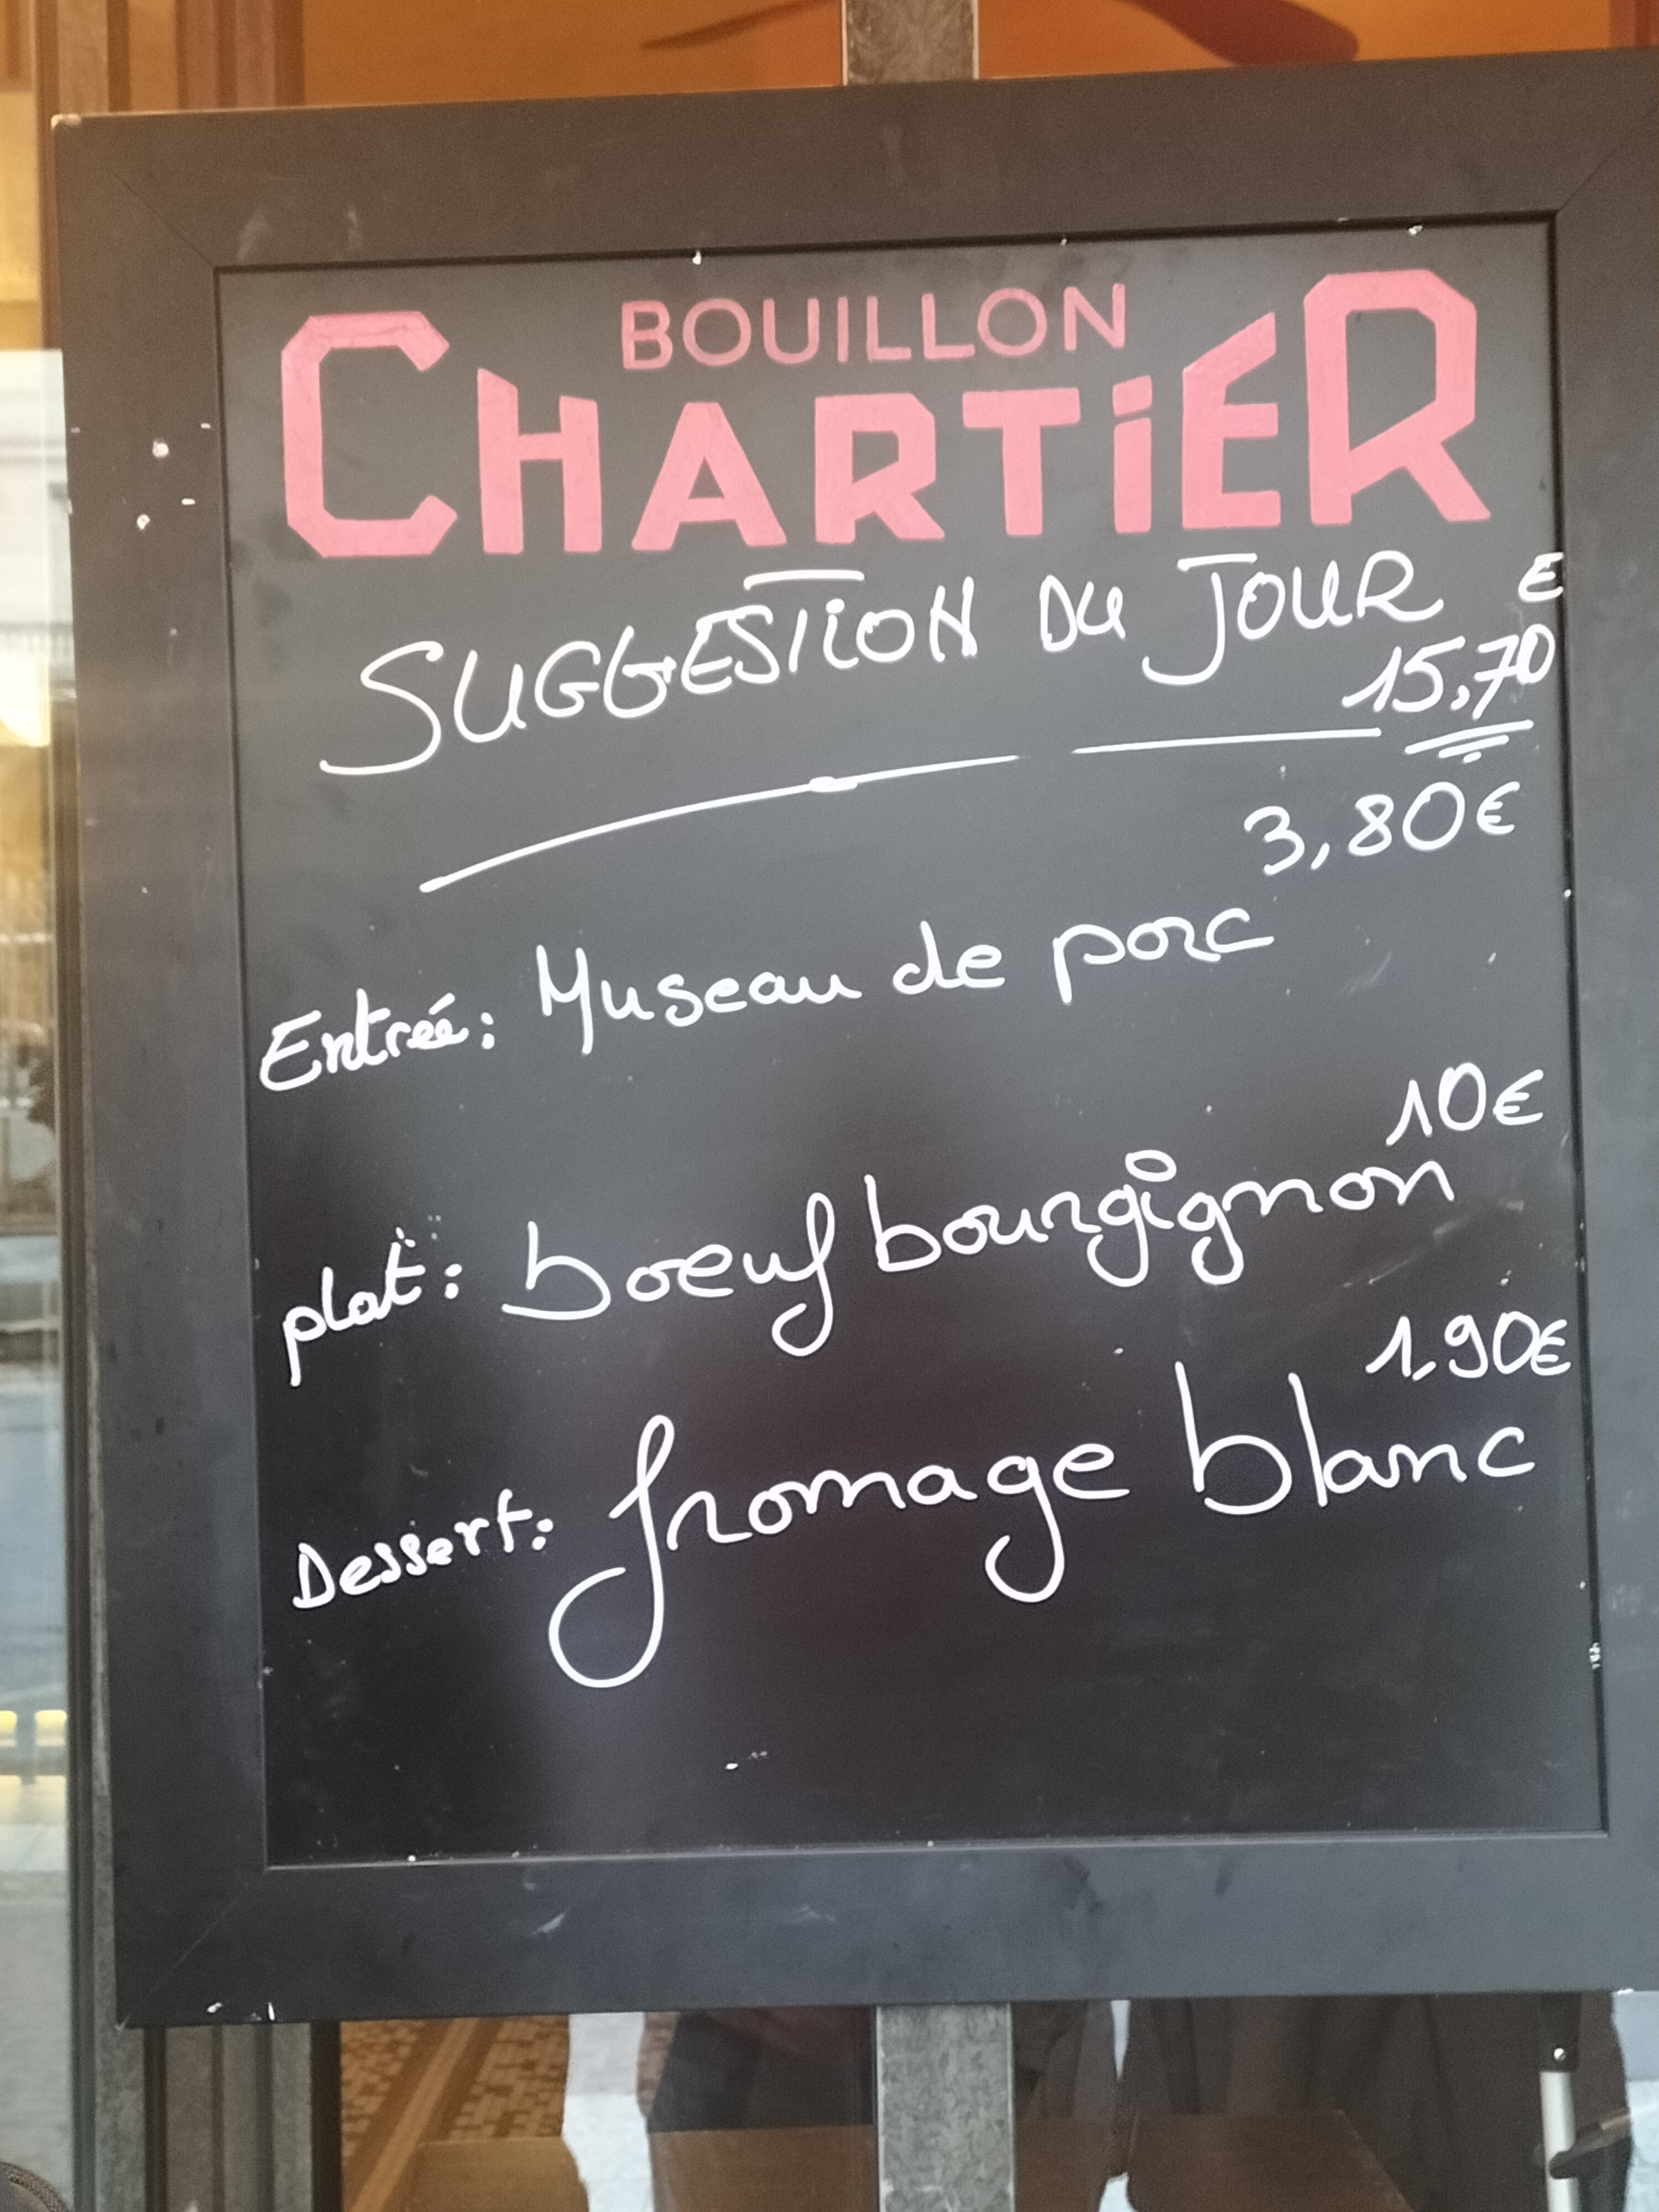 BOUILLON
CHARTiER
SUGGESTiON DU JOUR €
15,70
3,80€
Entrée: Museau de porc
10€
plat: boeuf bourgignon
1,90€
Dessert: fromage blanc